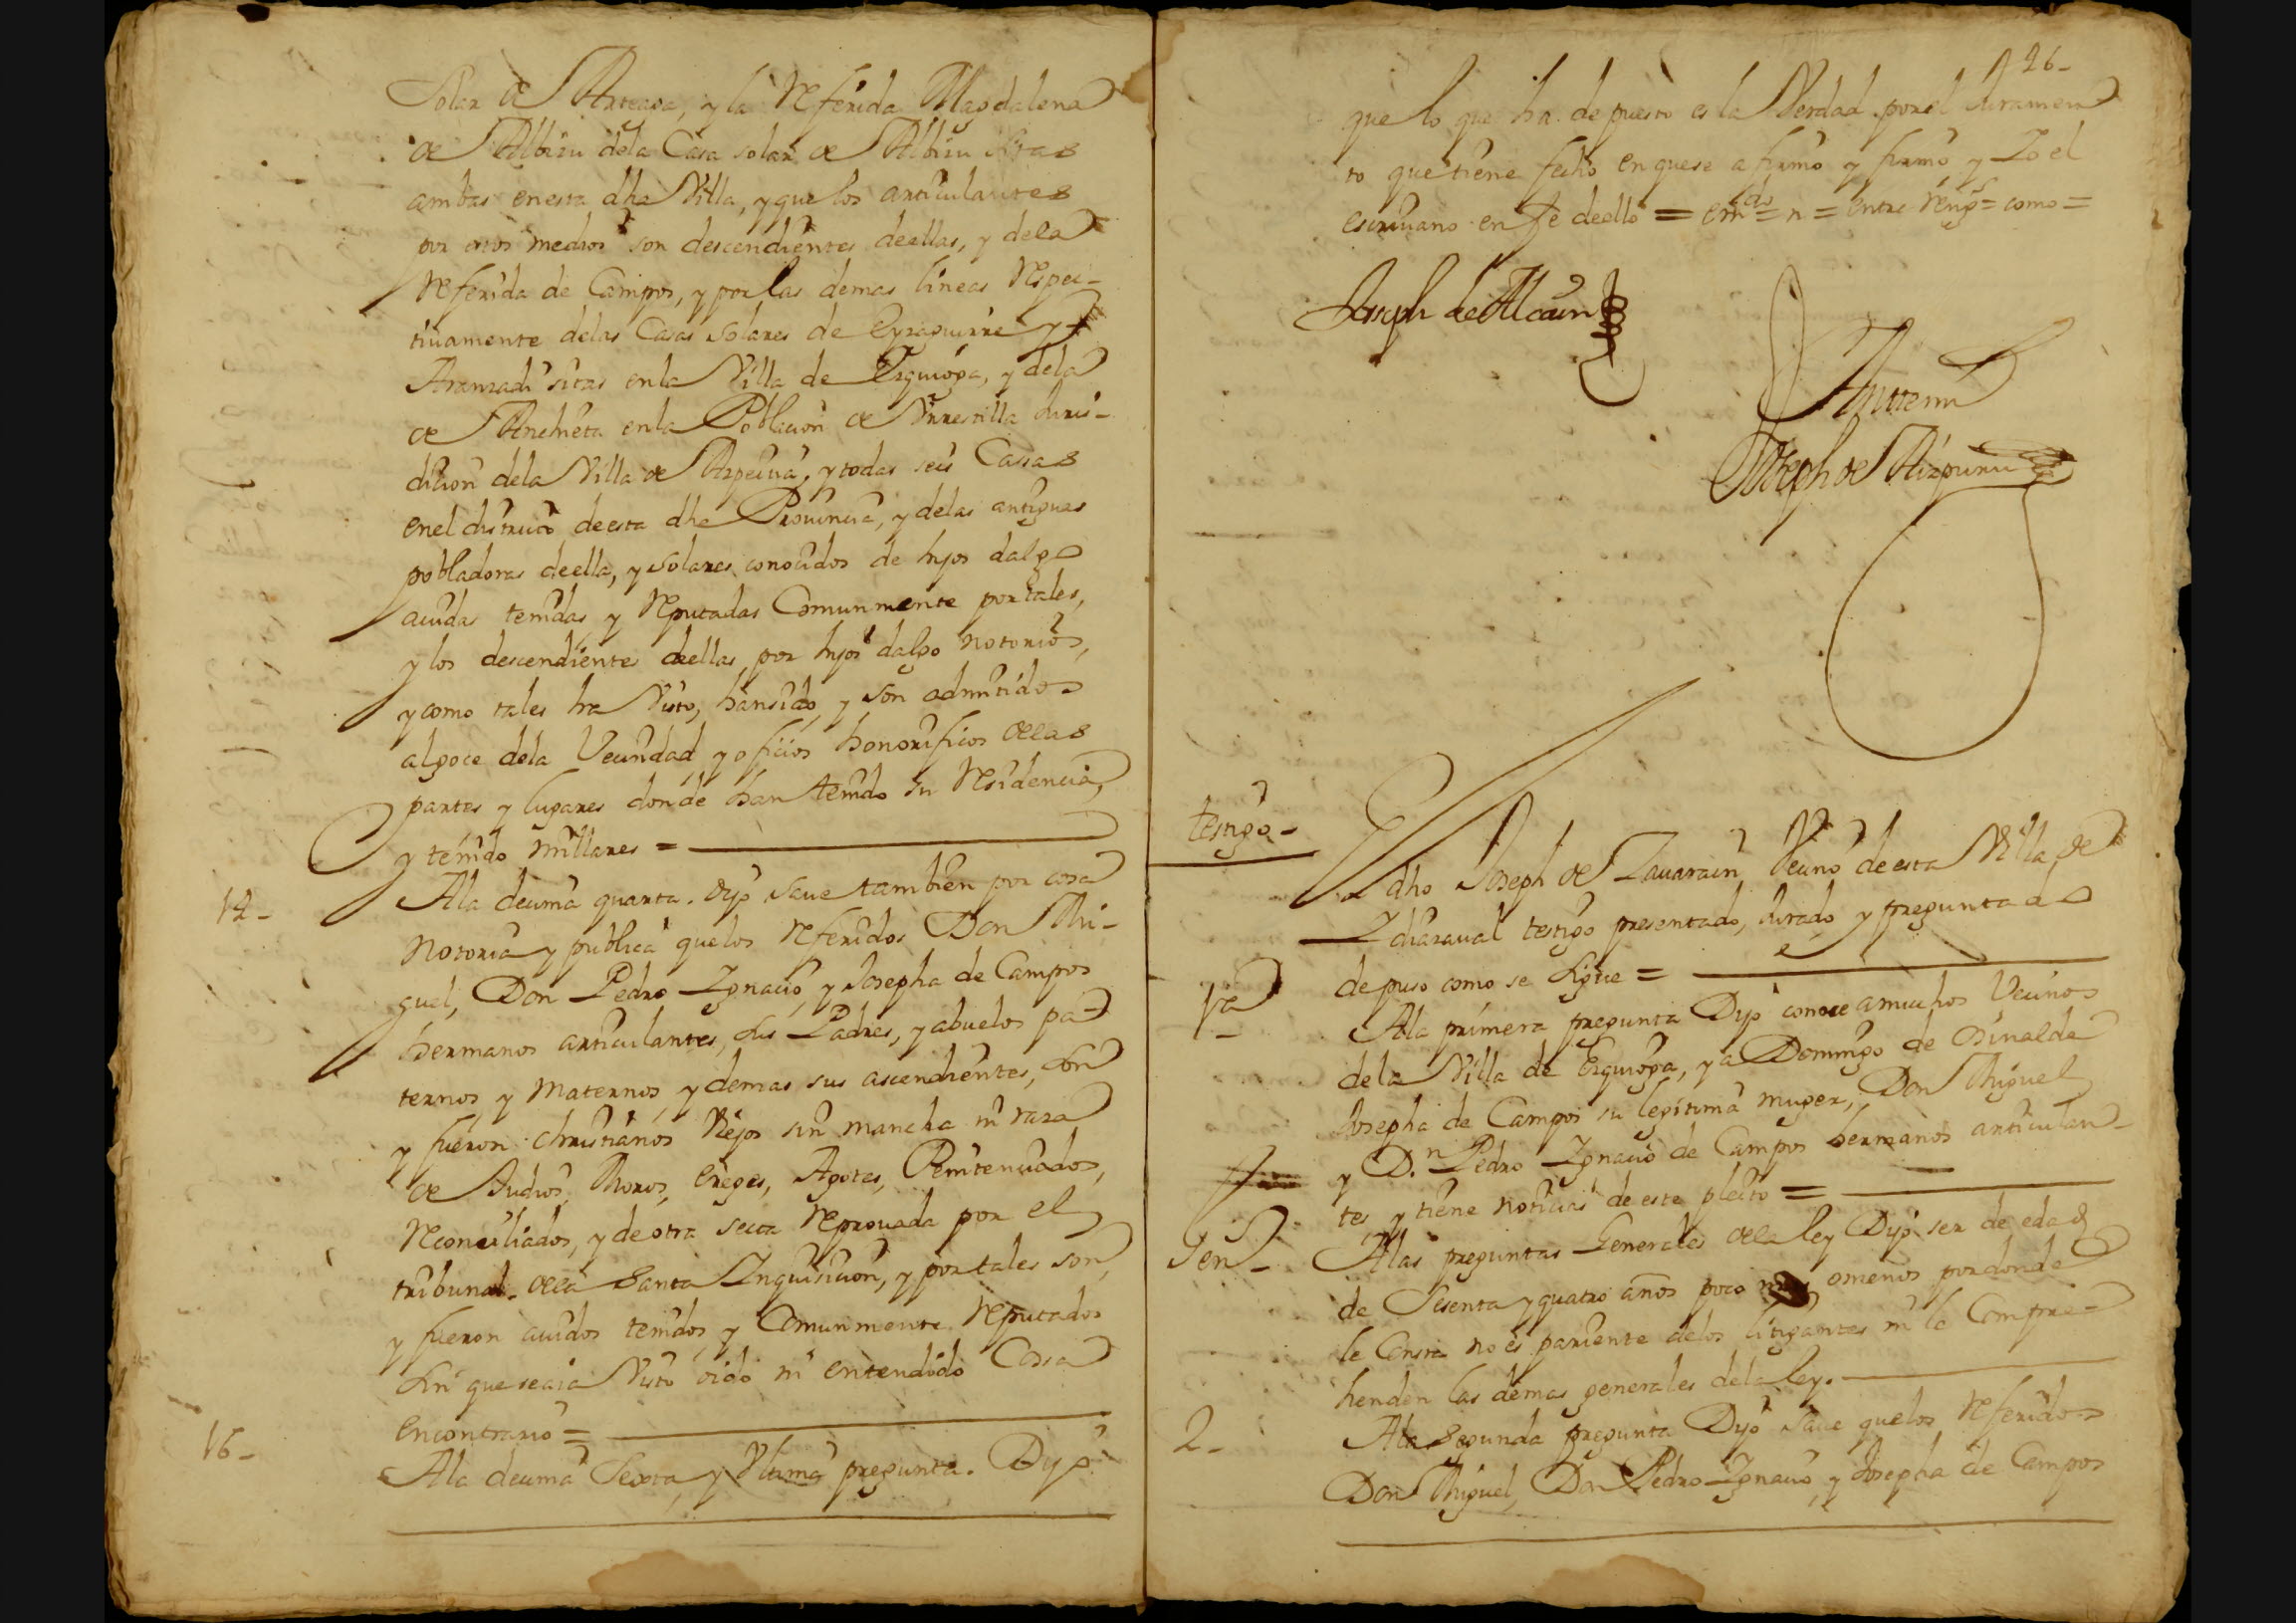 Solar de Arteaga, y la Referida Magdalena
de Albizu dela Casa solar de Albizu sitas
ambas enesta dha Villa, y que los articulantes
por estos medios son descendientes deellas, y dela
Referida de Campos, y por las demas lineas Respec-
tiuamente delas Casas solares de Eyzaguirre y
Aranzadi sitas enla Villa de Ezquioga, y dela
de Ancheta enla Poblacion de Vrrestilla Juris-
dicion dela Villa de Azpeitia, y todas seis Casas
enel distrito deesta dha Prouincia, y delas antiguas
pobladoras deella, y solares conocidos de hijos dalgo
auidas tenidas y Reputadas Comunmente por tales,
y los descendientes deellas por hijos dalgo notorios,
y como tales ha Visto, han sido, y son admitidos
algoce dela Vecindad y oficios honorificos delas
partes y lugares donde han tenido su Residencia,
y tenido millares =
14- Ala decima quarta. dijo saue tambien por cosa
notoria y publica quelos Referidos Don Mi-
guel, Don Pedro Ignacio, y Josepha de Campos
hermanos articulantes, sus Padres, y abuelos pa-
ternos y Maternos, y demas sus ascendientes, son
y fueron christianos Viejos sin mancha ni raza
de Judios, Moros, Ereges, Agotes, Penitenciados,
Reconciliados, y de otra secta Reprouada por el
tribunal dela Santa Inquisicion, y por tales son,
y fueron auidos tenidos, y Comunmente Reputados
sin que seaia Visto oido ni entendido Cossa
encontrario =
16- Ala decima Sexta, y Vltima pregunta. Dijo
126-
que lo que ha depuesto es la Verdad por el Juramen
to que tiene fecho en que se afirmo y firmo, y Yo el
escriuano en fe deello = emdo = n = entre Reng.s = como =
Joseph de Alcain
Ante mi
Joseph de Aizpuru
testigo-
El dho Joseph de Zauarain Vecino de esta Villa de
Ichasaual testigo presentado, Jurado y preguntado
depuso como se sigue =
1a Ala primera pregunta Dijo conoce amuchos Vecinos
dela Villa de Ezquioga, y a Domingo de Oinalde
Josepha de Campos su legitima muger, Don Miguel
y D.n Pedro Ignacio de Campos hermanos articulan-
tes, y tiene noticias de este pleito =
Gen- Alas preguntas Generales dela ley Dijo ser de edad
de Sesenta y quatro años poco mas omenos por donde
le Consta no es pariente delos litigantes ni le Compre-
henden las demas generales dela ley.
2- Ala Segunda pregunta Dijo saue quelos Referidos
Don Miguel, Don Pedro Ignacio, y Josepha de Campos